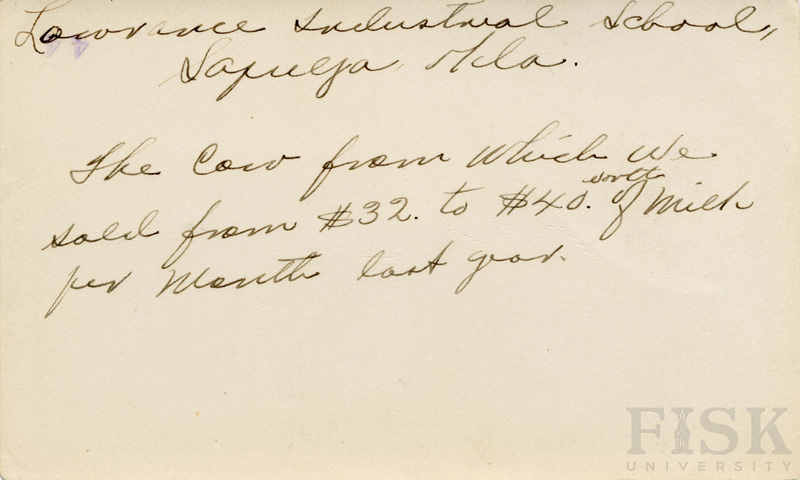 Lowrance Industrial School,
44
Sapulpa, Okla.
The Cow from which we
sold from $32. to $40. worth of Milk
per Month last year.
FISK
UNIVERSITY